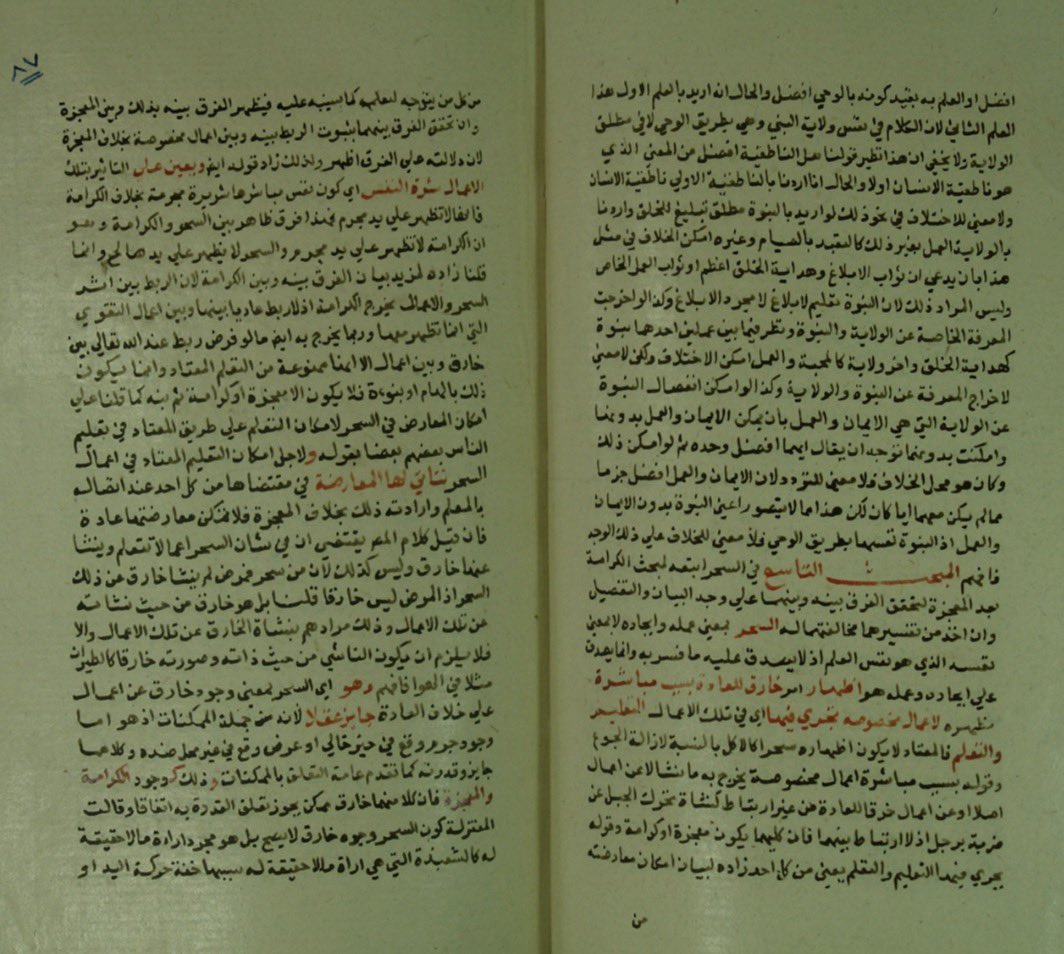 افضل او العلم به بقيد كونه بالوحي افضل والحال انه اريد بالعلم الاول هذا
العلم الثاني لان الكلام في نفس ولاية النبي وهي بطريق الوحي لا في مطلق
الولاية ولا يخفي ان هذا نظير قولنا هل الناطقية افضل من المعني الذي
هو ناطقية الانسان اولا والحال انا اردنا بالناطقية الاولي ناطقية الانسان
ولا معني للاختلاف في نحو ذلك لو اريد بالنبوة مطلق تبليغ للخلق واردنا
بالولاية العمل بغير ذلك كالتعبد بالصيام وغيره امكن الخلاف في مثل
هذا بان يدعي ان ثواب الابلاغ وهداية الخلق اعظم او ثواب العمل الخاص
وليس المراد ذلك لان النبوة تعليم لابلاغ لا مجرد الابلاغ وكذا لو اخرجت
المعرفة الخاصة عن الولاية والنبوة ونظر فيما بين عملين احدهما نبوة
كهداية الخلق واخر ولاية كالمحبة والعمل امكن الاختلاف ولكن لا معني
لاخراج المعرفة عن النبوة والولاية وكذا لو امكن انفصال النبوة
عن الولاية التي هي الايمان والعمل بان يمكن الايمان والعمل بدونها
وامكنت بدونهما توجه ان يقال ايهما افضل وحده ثم لو امكن ذلك
وكان هو محل الخلاف فلا معني للتردد لان الايمان والعمل افضل جزما
مما لم يكن معهما ايا كان لكن هذا مما لا يتصور اعني النبوة بدون الايمان
والعمل اذ النبوة نفسها بطريق الوحي فلا معني للخلاف علي ذلك الوجه
فافهم المبحث التاسع في السحر اتبعه لمبحث الكرامة
بعد المعجزة لتحقق الفرق بينه وبينهما علي وجه البيان والتفصيل
وان اخذ من تفسيرهما مخالفتهما له السحر بمعني عمله وايجاده لا بمعني
نفسه الذي هو نفس العلم اذ لا يصدق عليه ما فسر به وانما يصدق
علي ايجاده وعمله هو اظهار امر خارق للعادة بسبب مباشرة
مظهره لاعمال مخصوصه يجري فيها اي في تلك الاعمال التعليم
والتعلم فالمعتاد لا يكون اظهاره سحرا كالاكل بالنسبة لازالة الجوع
وقوله بسبب مباشرة اعمال مخصوصة يخرج به ما نشا لا عن اعمال
اصلا او عن اعمال خرقا للعادة من غير ارتباط كنشاة تحرك الجبل عن
ضربة برجل اذ لا ارتباط بينهما فان كليهما يكون معجزة او كرامة وقوله
يجري فيهما التعليم والتعلم يعني من كل احد زاده لبيان امكان معارضته
من
من كل من يتوجه لتعلمه كما سينبه عليه فيظهر الفرق بينه بذلك وبين المعجزة
وان تحقق الفرق بينهما بثبوت الربط بينه وبين اعمال مخصوصة بخلاف المعجزة
لان دلالته علي الفرق اظهر ولذلك زاد قوله ايضا ويعين علي التاثير بتلك
الاعمال شرة النفس اي كون نفس مباشرها شريرة مجرمة بخلاف الكرامة
فانها لا تظهر علي يد مجرم فهذا فرق ظاهر بين السحر والكرامة وهو
ان الكرامة لا تظهر علي يد مجرم والسحر لا يظهر علي يد صالح وانما
قلنا زاده لمزيد بيان الفرق بينه وبين الكرامة لان الربط بين اثر
السحر والاعمال يخرج الكرامة اذ لا ربط عاديا بينها وبين اعمال التقوي
التي انما تظهر معها وربما يخرج به ايضا ما لو فرض ربط عند الله تعالي بين
خارق وبين اعمال الا انها ممنوعة من التعلم المعتاد وانما يكون
ذلك بالهام او بنبوة فلا يكون الا معجزة او كرامة ثم نبه كما قلنا علي
امكان المعارض في السحر لامكان التعلم علي طريق المعتاد في تعليم
الناس بعضهم بعضا بقوله ولاجل امكان التعليم المعتاد في اعمال
السحر تتاتي لها المعارضة في مقتضاها من كل احد عند اتصاله
بالمعلم وارادته ذلك بخلاف المعجزة فلا تمكن معارضتها عادة
فان قيل كلام المص يقتضي ان في شان السحر اعمالا تتعلم وينشا
عنها خارق وليس كذلك لان من سحر فمرض لم ينشا خارق عن ذلك
السحر اذ المرض ليس خارقا قلنا بل هو خارق من حيث نشاته
عن تلك الاعمال وذلك مرادهم بنشاة الخارق عن تلك الاعمال والا
فلا يلزم ان يكون الناشي من حيث ذاته وصورته خارقا كالطيران
مثلا في الهوا فافهم وهو اي السحر بمعني وجود خارق عن اعمال
علي خلاف العادة جايز عقلا لانه من جملة الممكنات اذ هو اما
وجود جرم وقع في حيز خالي او عرض وقع في غير محل ضده وكلاهما
جايز وقدرته كما تقدم عامة التعلق بالممكنات وذلك كوجود الكرامة
والمعجزة فان كلا منهما خارق ممكن يجوز تعلق القدرة به اتفاقا وقالت
المعتزلة كون السحر وجوه خارق لا يصح بل هو مجرد اراءة ما لا حقيقة
له كالشعبذة التي هي اراة ما لا حقيقة له سببها خفة حركة اليد او